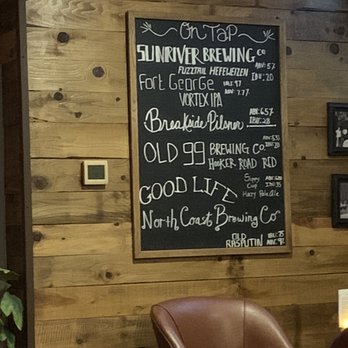 On Tap
Sunriver Brewing Co
Fuzztail Hefeweizen
ABV: 5%
IBU: 20
Fort George
Vortex IPA
IBU: 97
ABV: 7.7%
Breakside Pilsner
IBU: 28
Old 99 Brewing Co.
Hooker Road Red
Good Life
Sippy Cup
Hazy Pale Ale
IBU: 35
North Coast Brewing Co
Old Rasputin
IBU: 75